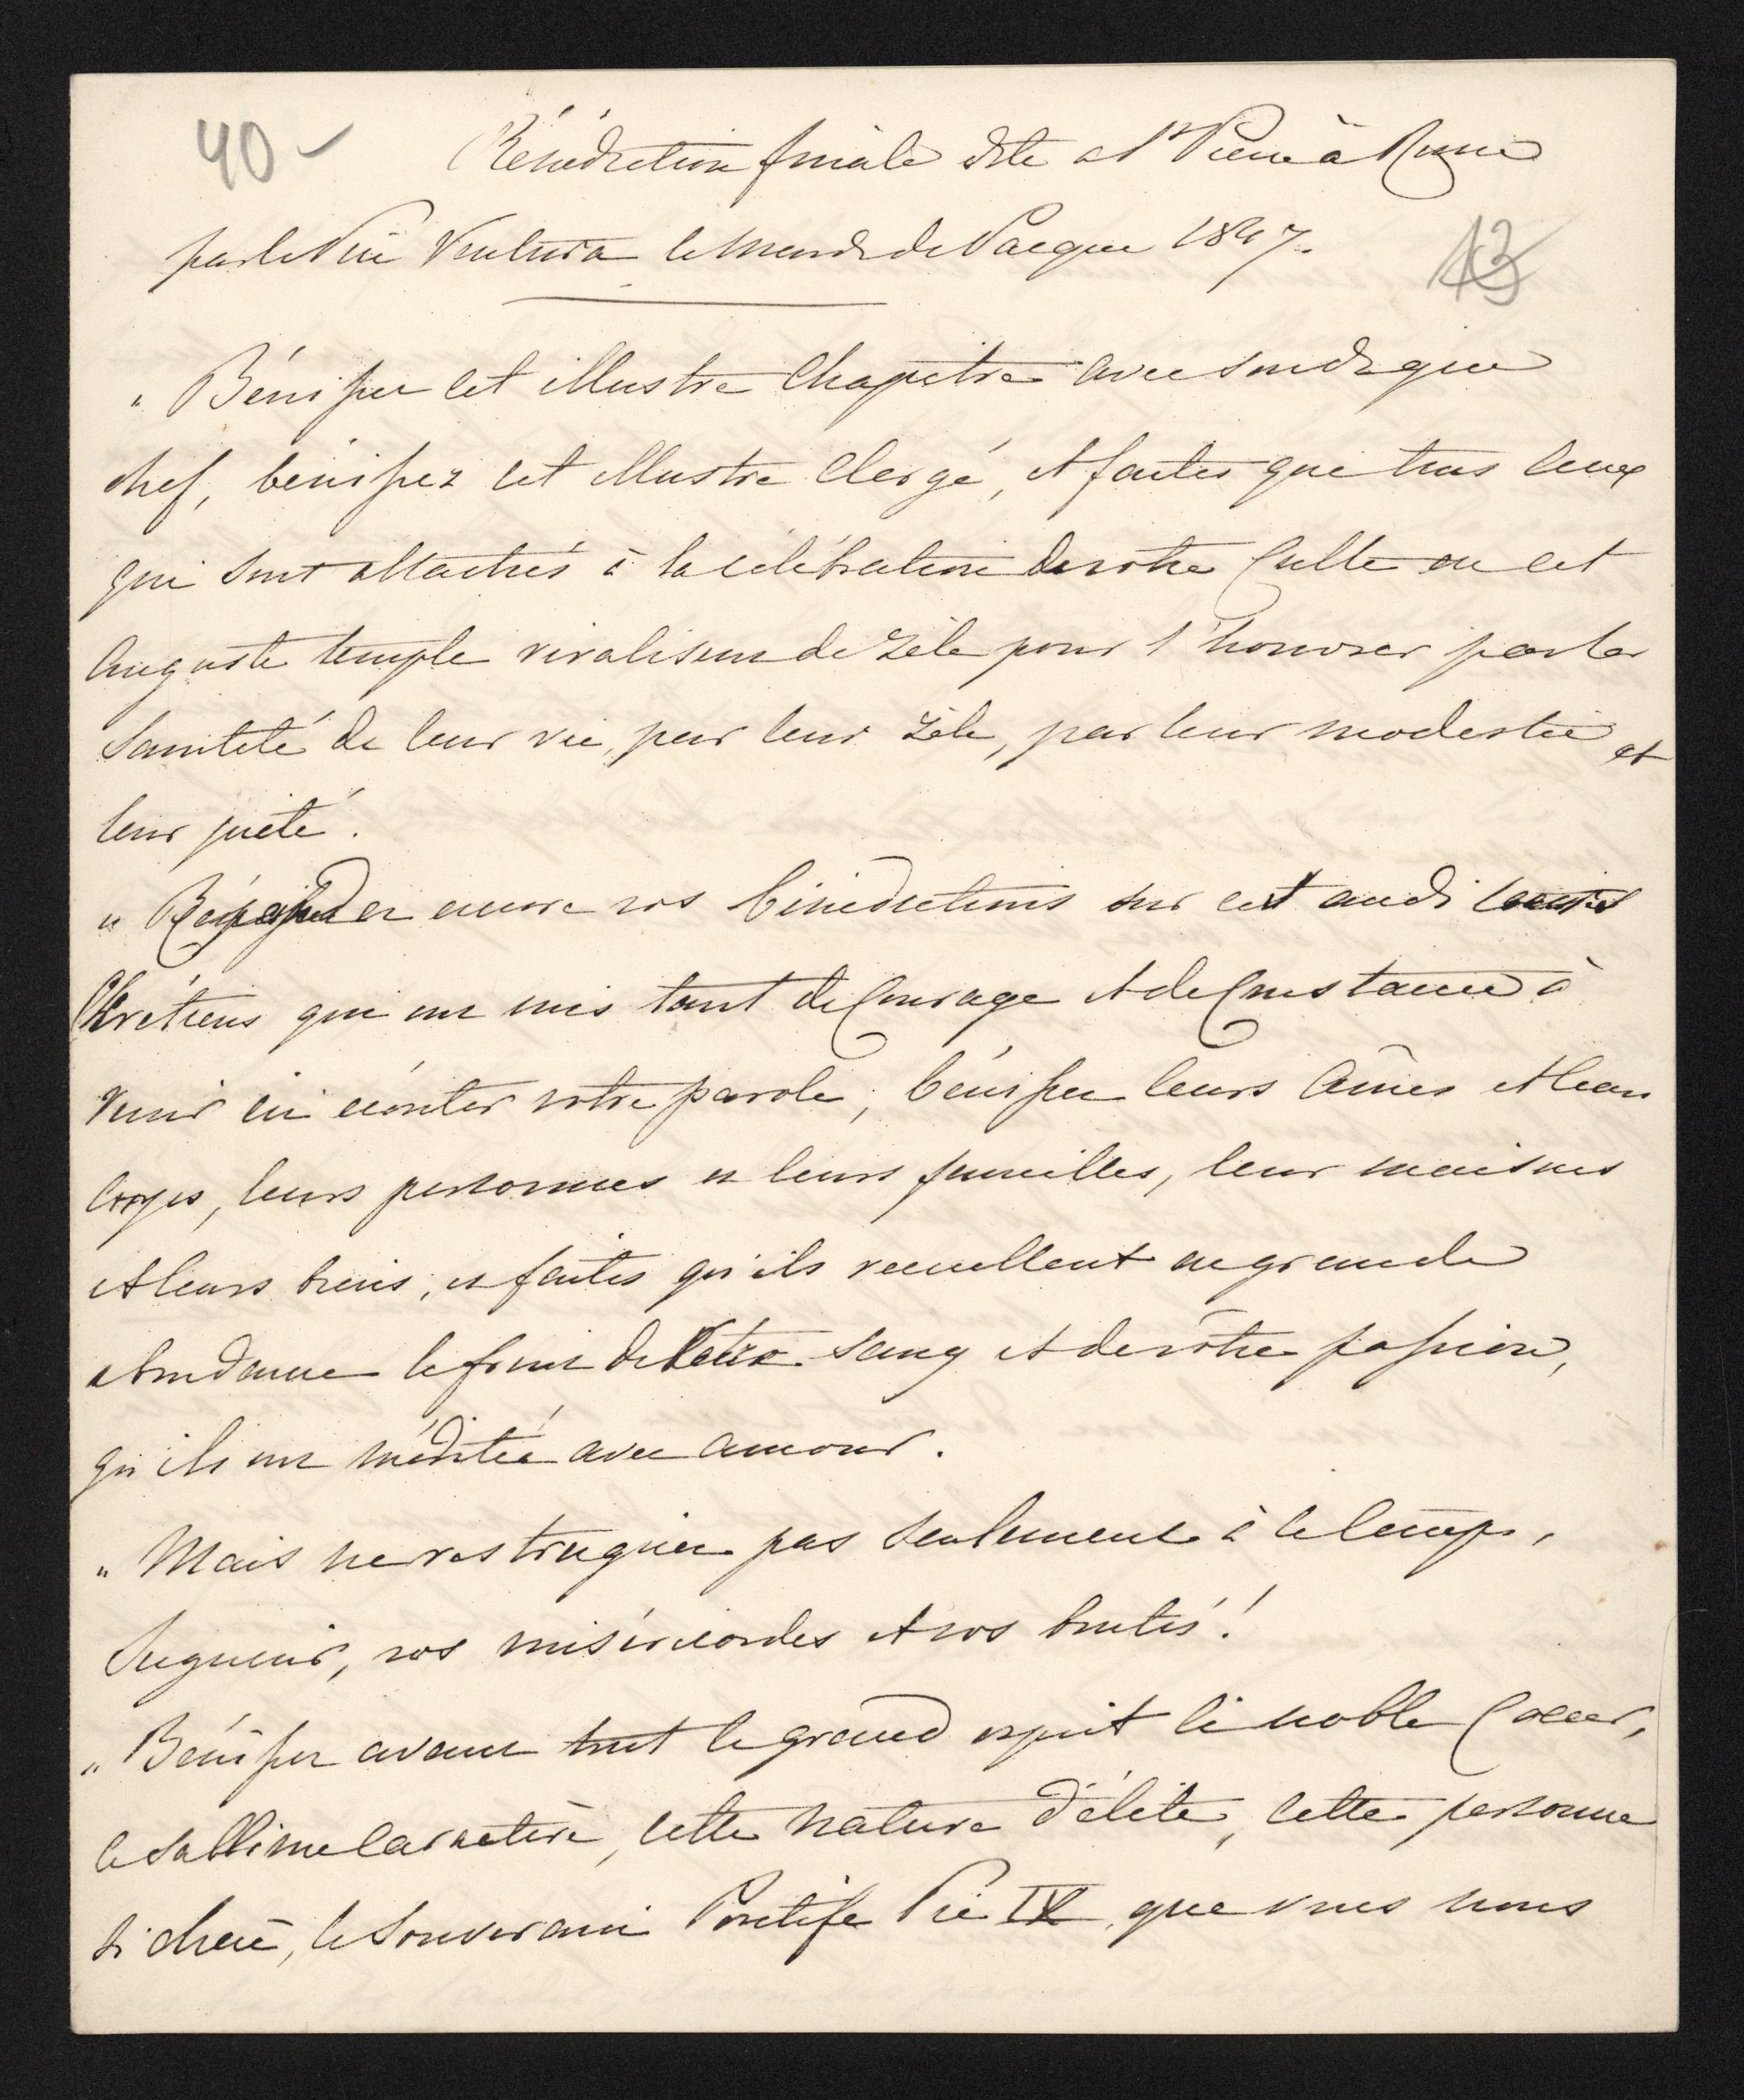 40 -
Bénédiction finale dite à St Pierre à Rome
par le Père Ventura le Mardi de Pacque 1847.
13
" Bénissez cet illustre Chapitre avec son digne
chef, bénissez cet illustre Clergé, et faites que tous ceux
qui sont attachés à la célébration de votre Culte en cet
Auguste temple rivalisent de zèle pour l'honorer par la
Sainteté de leur vie, par leur zèle, par leur modestie et
leur piété.
" Répandez encore vos bénédictions sur cet
Chrétiens qui ont mis tant de Courage et de Constance à
venir ici écouter votre parole; bénissez leurs âmes et leur
corps, leurs personnes et leurs familles, leur maisons
et leurs biens, et faites qu'ils recueillent en grande
abondance le fruit de Votre sang et de vôtre passion,
qu'ils ont méditée avec amour.
" Mais ne restreignez pas seulement à ce temps,
Seigneur, vos miséricordes et vos bontés!
" Bénissez avant tout le grand esprit le noble Coeur,
le sublime Caractère, cette nature d'élite, cette personne
si chère, le Souverain Pontife Pie IX que vous nous